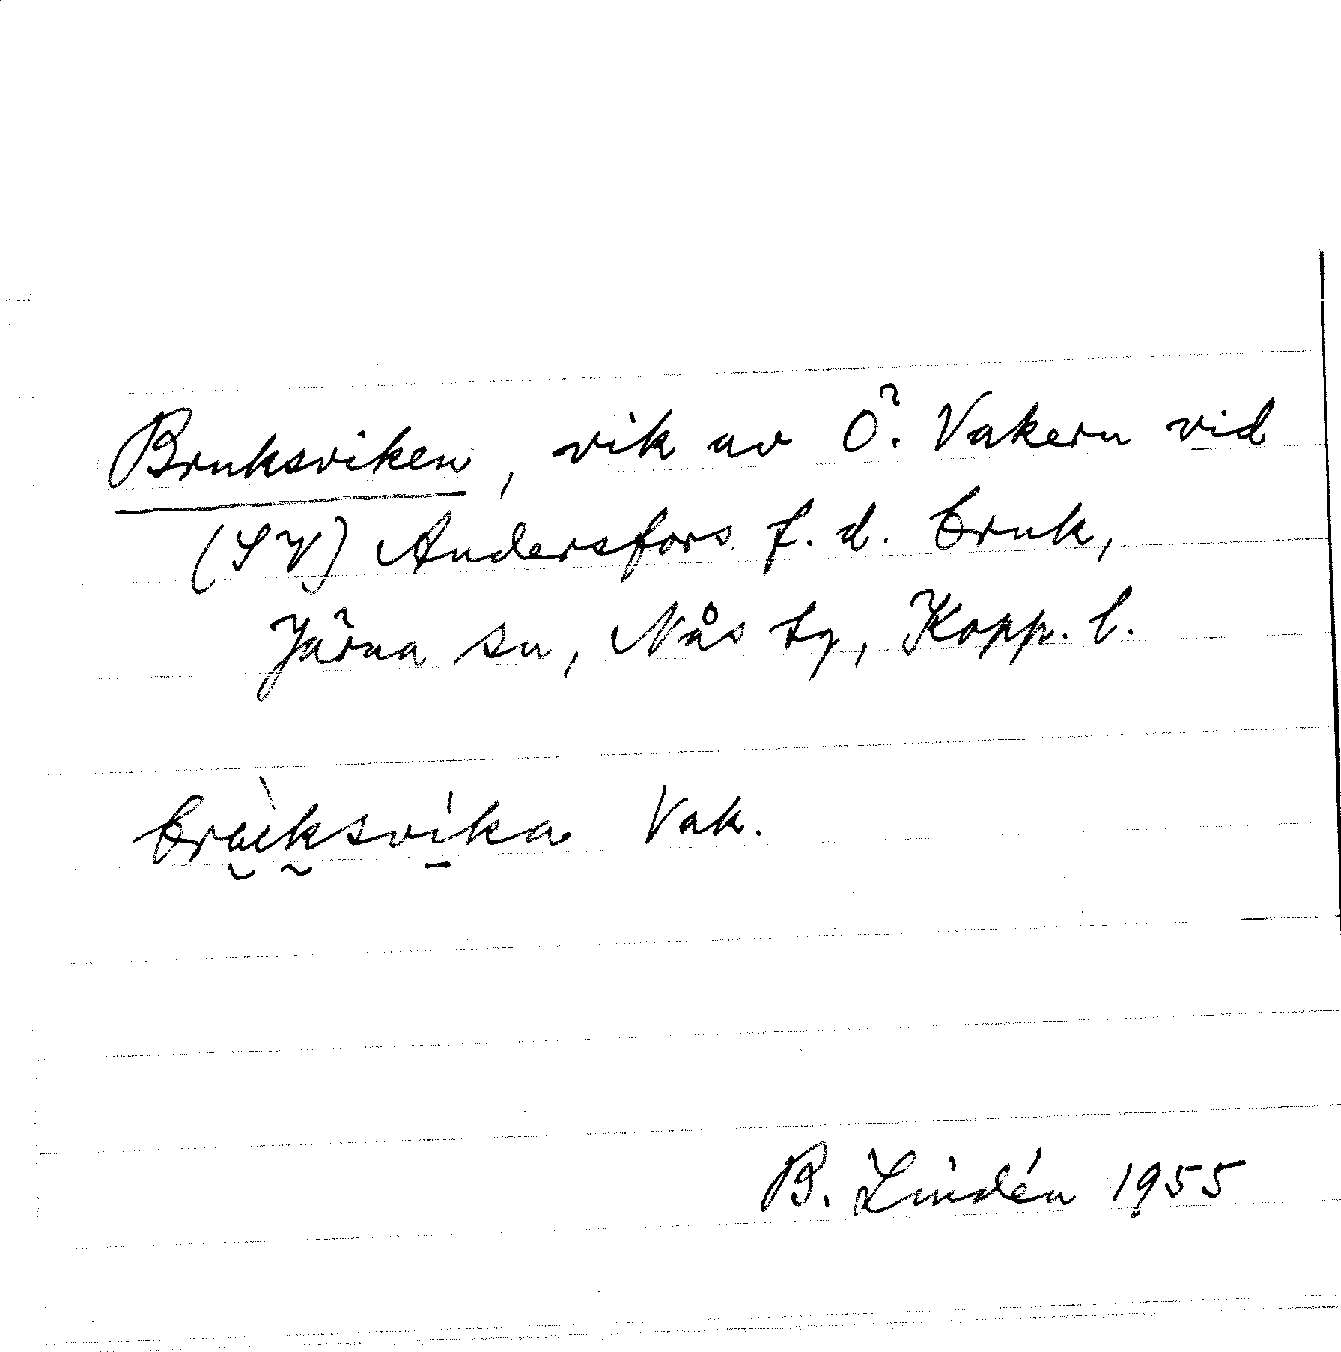 Bruksviken, vik av Ö. Vakern vid
(SV) Andersfors f. d. bruk,
Järna sn, Nås tg, Kopp. l.
brùksvíka Vak.
B. Lindén 1955